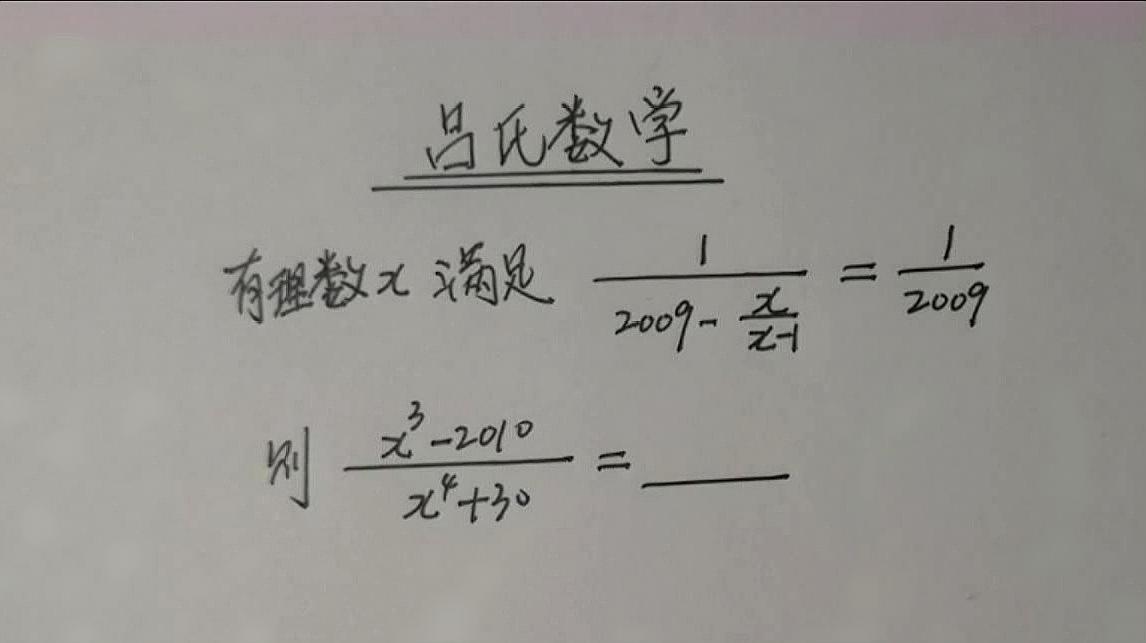 吕氏数学
有理数x 满足 \frac{1}{2009-\frac{x}{x-1}} = \frac{1}{2009}
则 \frac{x^3-2010}{x^4+30} = ____